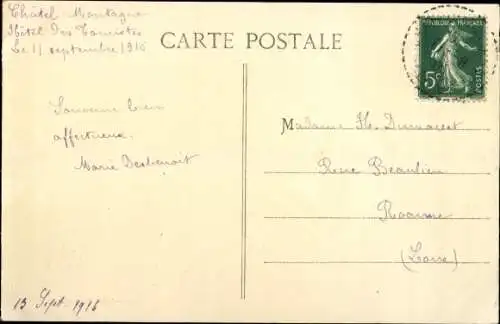 Châtel Montagne
Hôtel Des Touristes
Le 11 septembre 1916
CARTE POSTALE
RÉPUBLIQUE FRANÇAISE
5c
POSTES
Souvenir bien
affectueux.
Marie Desbenoit
Madame Th. Dumarest
Rue Beaulieu
Roanne
(Loire)
13 Sept. 1916